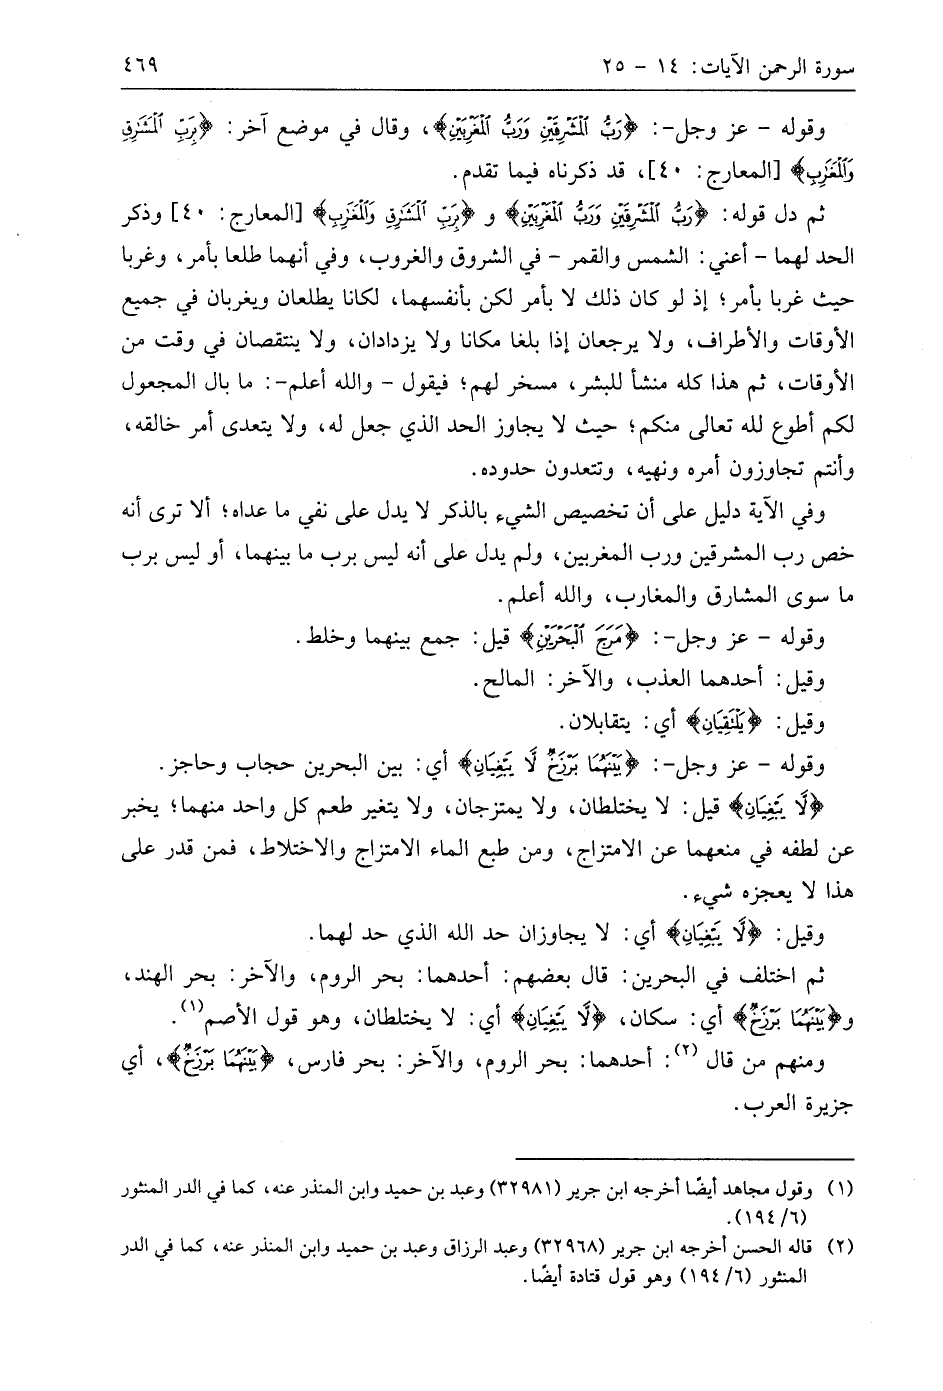 سورة الرحمن الآيات: ١٤ - ٢٥ ٤٦٩
وقوله - عز وجل-: ﴿رَبُّ ٱلْمَشْرِقَيْنِ وَرَبُّ ٱلْمَغْرِبَيْنِ﴾، وقال في موضع آخر: ﴿بِرَبِّ ٱلْمَشَٰرِقِ
وَٱلْمَغَٰرِبِ﴾ [المعارج: ٤٠]، قد ذكرناه فيما تقدم.
ثم دل قوله: ﴿رَبُّ ٱلْمَشْرِقَيْنِ وَرَبُّ ٱلْمَغْرِبَيْنِ﴾ و ﴿بِرَبِّ ٱلْمَشَٰرِقِ وَٱلْمَغَٰرِبِ﴾ [المعارج: ٤٠] وذكر
الحد لهما - أعني: الشمس والقمر - في الشروق والغروب، وفي أنهما طلعا بأمر، وغربا
حيث غربا بأمر؛ إذ لو كان ذلك لا بأمر لكن بأنفسهما، لكانا يطلعان ويغربان في جميع
الأوقات والأطراف، ولا يرجعان إذا بلغا مكانا ولا يزدادان، ولا ينتقصان في وقت من
الأوقات، ثم هذا كله منشأ للبشر، مسخر لهم؛ فيقول - والله أعلم-: ما بال المجعول
لكم أطوع لله تعالى منكم؛ حيث لا يجاوز الحد الذي جعل له، ولا يتعدى أمر خالقه،
وأنتم تجاوزون أمره ونهيه، وتتعدون حدوده.
وفي الآية دليل على أن تخصيص الشيء بالذكر لا يدل على نفي ما عداه؛ ألا ترى أنه
خص رب المشرقين ورب المغربين، ولم يدل على أنه ليس برب ما بينهما، أو ليس برب
ما سوى المشارق والمغارب، والله أعلم.
وقوله - عز وجل-: ﴿مَرَجَ ٱلْبَحْرَيْنِ﴾ قيل: جمع بينهما وخلط.
وقيل: أحدهما العذب، والآخر: المالح.
وقيل: ﴿يَلْتَقِيَانِ﴾ أي: يتقابلان.
وقوله - عز وجل-: ﴿بَيْنَهُمَا بَرْزَخٌ لَّا يَبْغِيَانِ﴾ أي: بين البحرين حجاب وحاجز.
﴿لَّا يَبْغِيَانِ﴾ قيل: لا يختلطان، ولا يمتزجان، ولا يتغير طعم كل واحد منهما؛ يخبر
عن لطفه في منعهما عن الامتزاج، ومن طبع الماء الامتزاج والاختلاط، فمن قدر على
هذا لا يعجزه شيء.
وقيل: ﴿لَّا يَبْغِيَانِ﴾ أي: لا يجاوزان حد الله الذي حد لهما.
ثم اختلف في البحرين: قال بعضهم: أحدهما: بحر الروم، والآخر: بحر الهند،
و﴿بَيْنَهُمَا بَرْزَخٌ﴾ أي: سكان، ﴿لَّا يَبْغِيَانِ﴾ أي: لا يختلطان، وهو قول الأصم(١).
ومنهم من قال (٢): أحدهما: بحر الروم، والآخر: بحر فارس، ﴿بَيْنَهُمَا بَرْزَخٌ﴾، أي
جزيرة العرب.
(١) وقول مجاهد أيضًا أخرجه ابن جرير (٣٢٩٨١) وعبد بن حميد وابن المنذر عنه، كما في الدر المنثور
(٦/ ١٩٤).
(٢) قاله الحسن أخرجه ابن جرير (٣٢٩٦٨) وعبد الرزاق وعبد بن حميد وابن المنذر عنه، كما في الدر
المنثور (٦/ ١٩٤) وهو قول قتادة أيضًا.